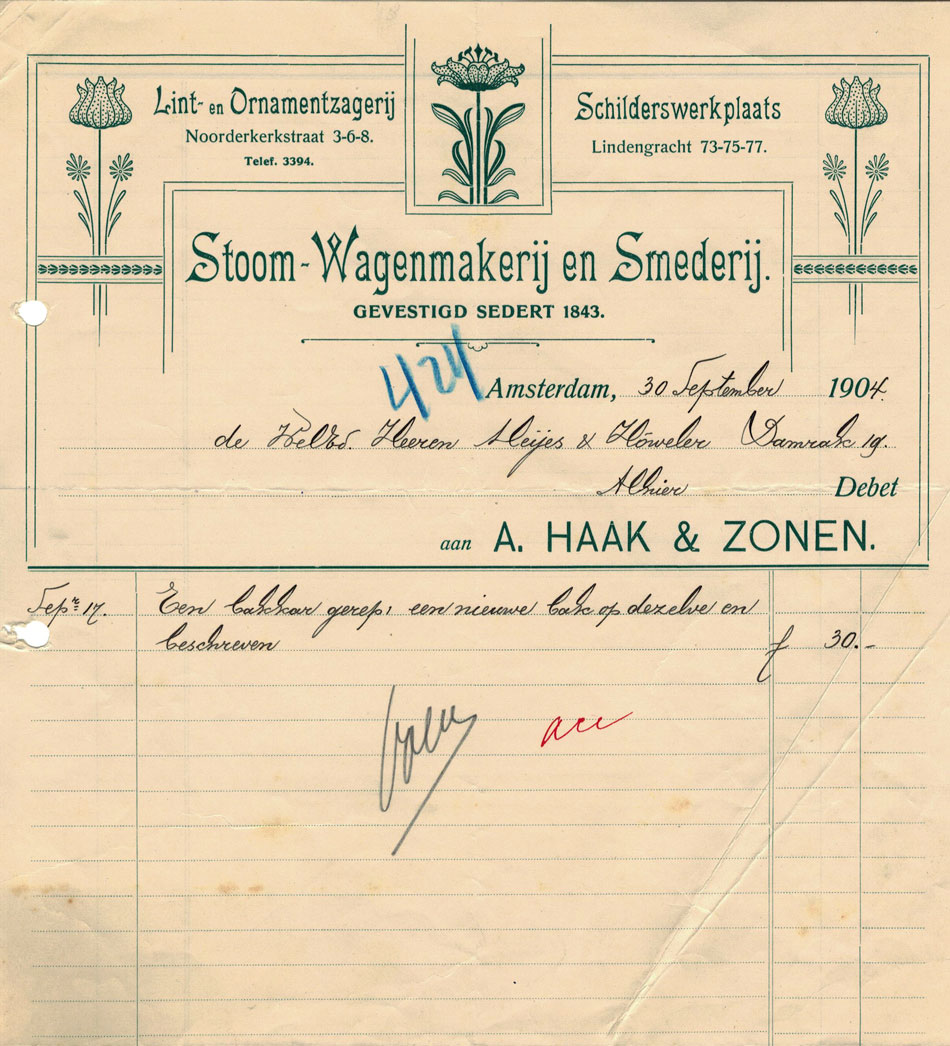 Lint- en Ornamentzagerij
Noorderkerkstraat 3-6-8.
Telef. 3394.
Schilderswerkplaats
Lindengracht 73-75-77.
Stoom-Wagenmakerij en Smederij.
GEVESTIGD SEDERT 1843.
424
Amsterdam, 30 September 1904.
de WelEd. Heeren Meijes & Höweler Damrak 19.
Alhier Debet
aan A. HAAK & ZONEN.
Sepr 17. Een bakkar gerep, een nieuwe bak op dezelve en
beschreven f 30.-